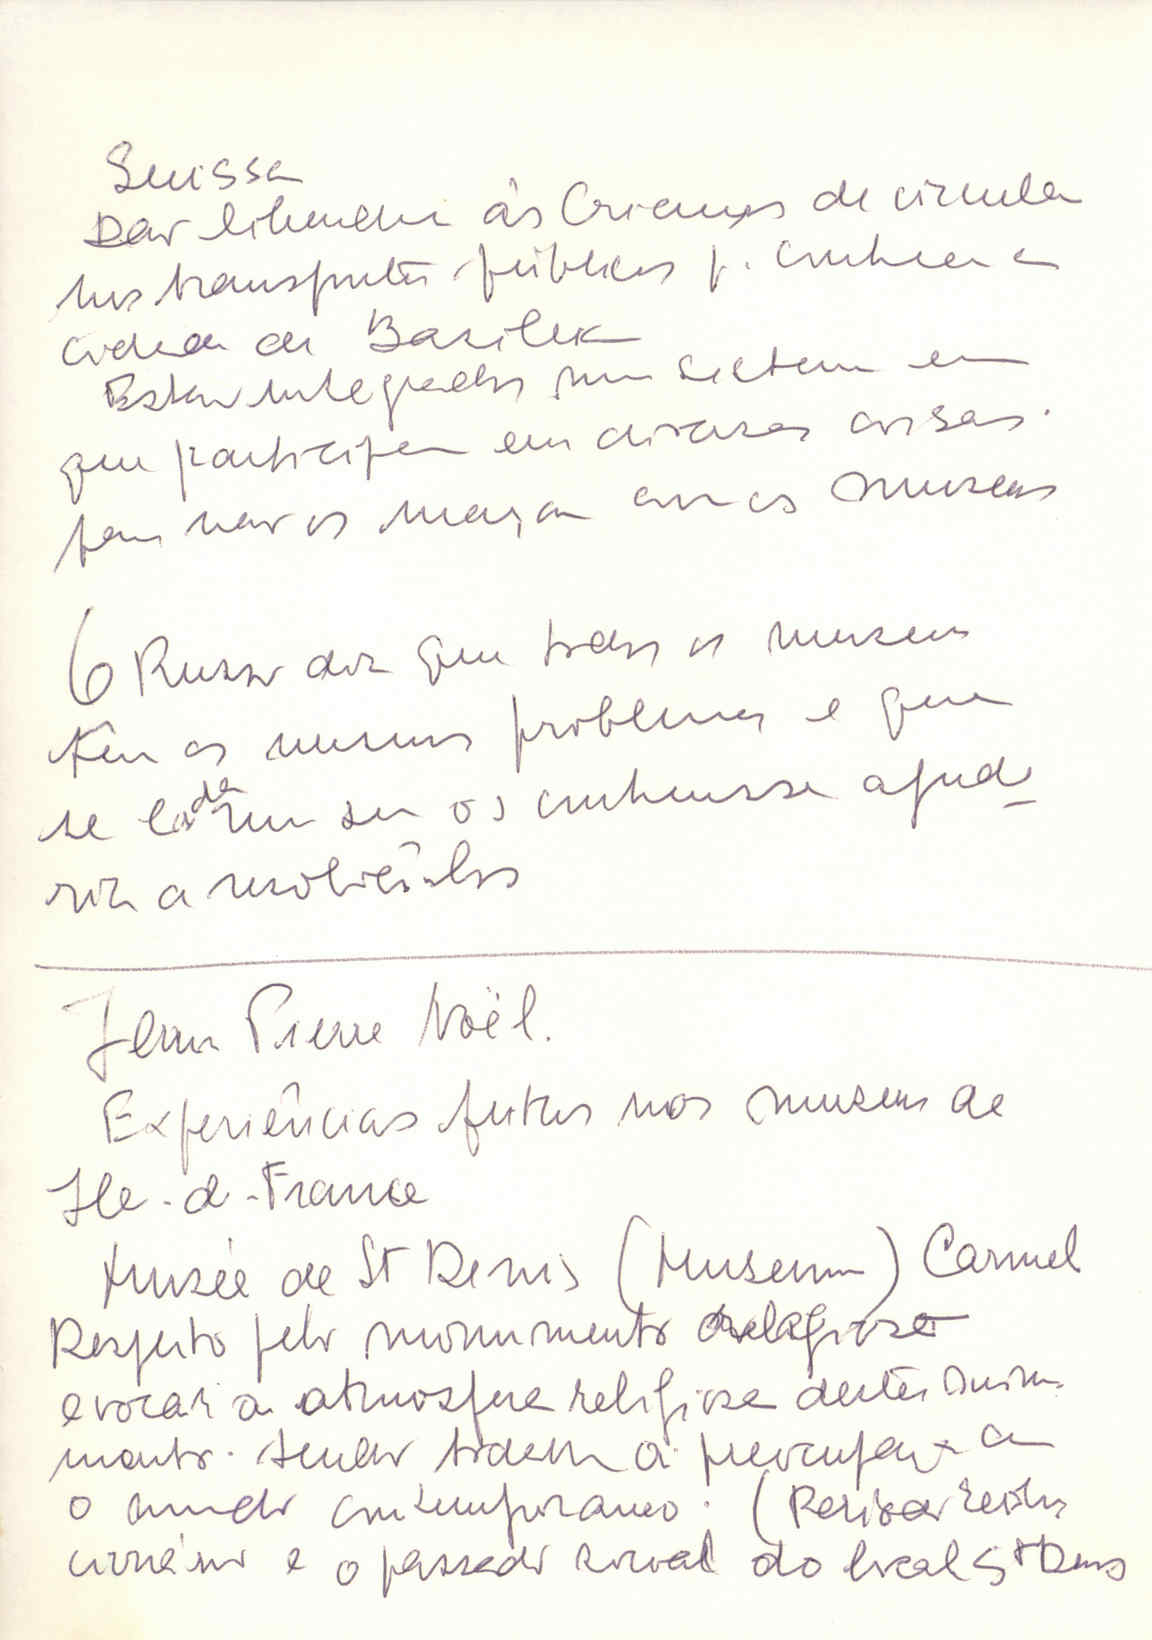 Suissa
Dar liberdade às Crianças de circular
nos transportes públicos p. conhecer a
cidade de Basileia
Estar integrados num sistema em
que participem em diversas coisas.
os museus
O Russo diz que todos os museus
têm os mesmos problemas e que
se cada um os conhecesse ajuda-
ria a resolvê-los
Jean Pierre Noël.
Experiências feitas nos museus de
Ile-d-France
Musée de St Denis (Museum) Carmel
Respeito pelo monumento religioso
evocar a atmosfera religiosa destes
mento. tendo todavia a preocupação com
o mundo contemporaneo. (Período revolu
cionário e o passado social do local St Denis